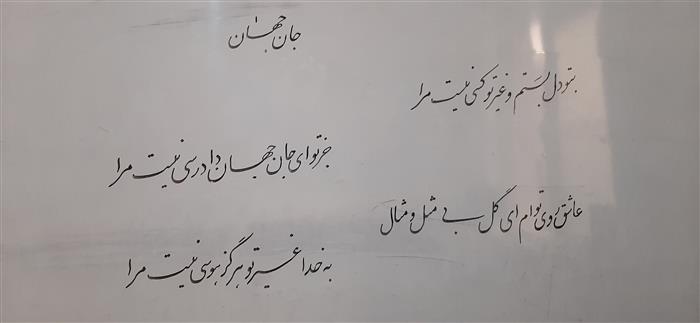 جان جهان
بتو دل بستم و غیر تو کسی نیست مرا
جز تو ای جان جهان دادرسی نیست مرا
عاشق روی توام ای گل بی مثل و مثال
به خدا غیر تو هرگز هوسی نیست مرا